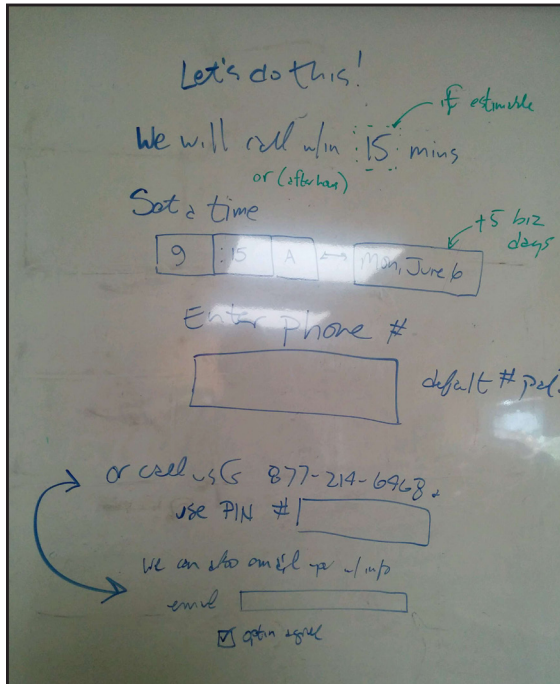 Let's do this!
if estimable
We will call w/in 15 mins
or (after hou)
Set a time
+5 biz
days
9 :15 A Mon, June 6
Enter phone #
default #
or call us @ 877-214-6968.
use PIN #
we can also email you w/ info
email
optin agree